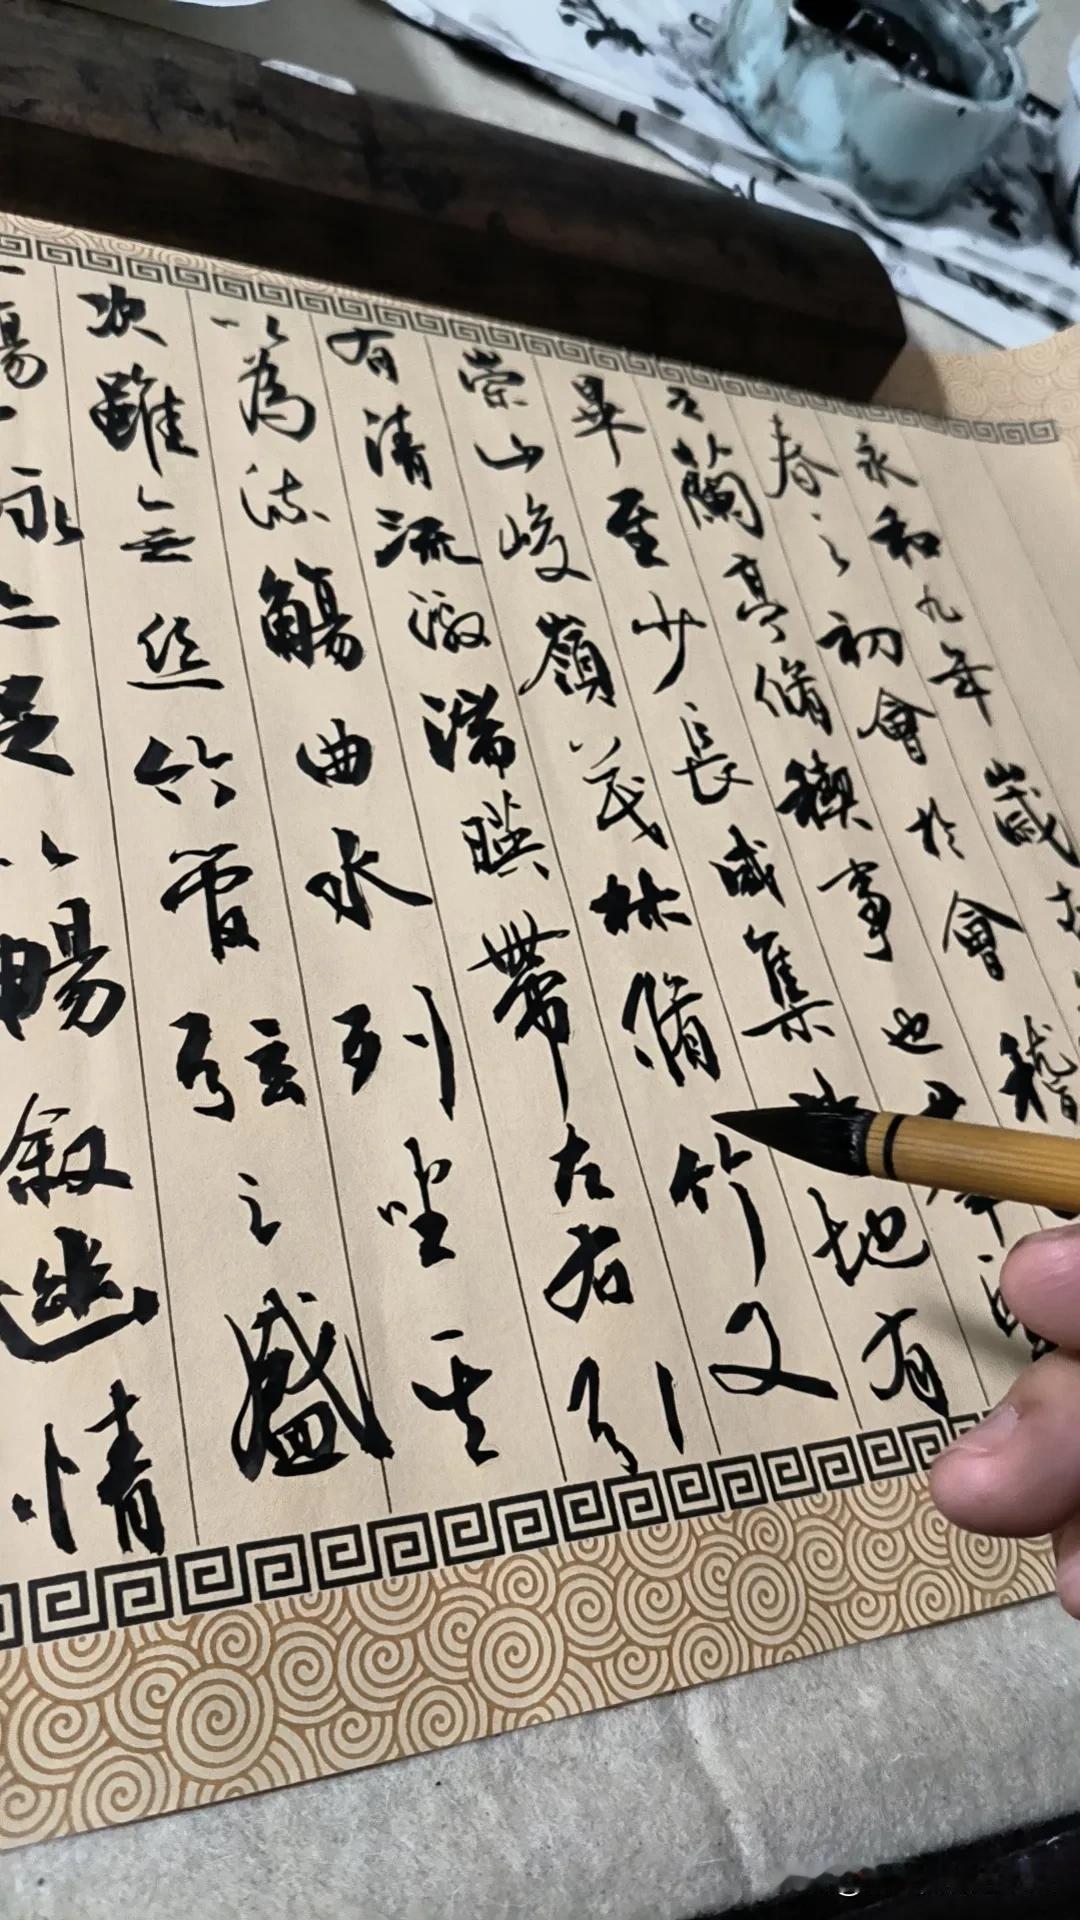 永和九年歲在
春之初會於會稽
之蘭亭脩禊事也
畢至少長咸集此地有
崇山峻嶺茂林脩竹又
有清流激湍暎帶左右引
以為流觴曲水列坐其
次雖無絲竹管弦之盛
一觴一詠亦足以暢叙幽情